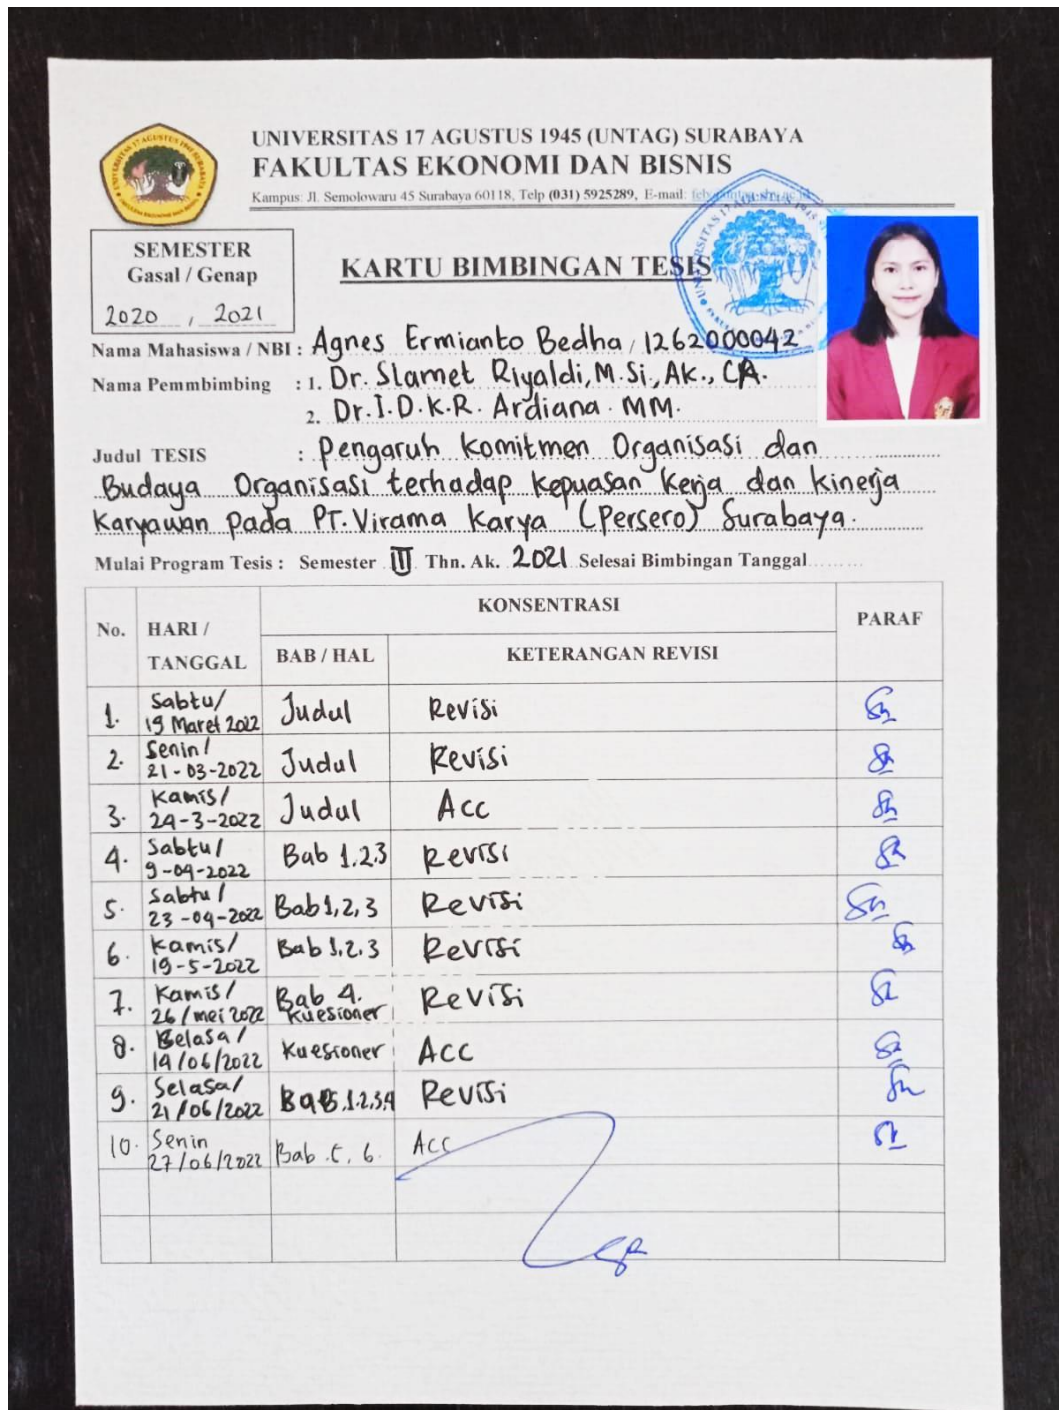 UNIVERSITAS 17 AGUSTUS 1945 (UNTAG) SURABAYA
FAKULTAS EKONOMI DAN BISNIS
Kampus: Jl. Semolowaru 45 Surabaya 60118, Telp (031) 5925289, E-mail:
SEMESTER
Gasal / Genap
2020 , 2021
KARTU BIMBINGAN TESIS
Nama Mahasiswa / NBI : Agnes Ermianto Bedha, 1262000042
Nama Pemmbimbing : 1. Dr. Slamet Riyaldi, M.Si., Ak., CA.
2. Dr. I.D.K.R. Ardiana. MM.
Judul TESIS : Pengaruh Komitmen Organisasi dan
Budaya Organisasi terhadap Kepuasan Kerja dan Kinerja
Karyawan Pada PT. Virama Karya (Persero) Surabaya.
Mulai Program Tesis : Semester III Thn. Ak. 2021 Selesai Bimbingan Tanggal
No. HARI / TANGGAL KONSENTRASI PARAF
BAB / HAL KETERANGAN REVISI
1. Sabtu/ 19 Maret 2022 Judul Revisi
2. Senin/ 21-03-2022 Judul Revisi
3. Kamis/ 24-3-2022 Judul Acc
4. Sabtu/ 9-04-2022 Bab 1.2.3 Revisi
5. Sabtu/ 23-04-2022 Bab 1,2,3 Revisi
6. Kamis/ 19-5-2022 Bab 1.2.3 Revisi
7. Kamis/ 26/mei 2022 Bab 4. Kuesioner Revisi
8. Selasa/ 14/06/2022 Kuesioner Acc
9. Selasa/ 21/06/2022 Revisi
10. Senin 27/06/2022 Bab 5. 6. Acc